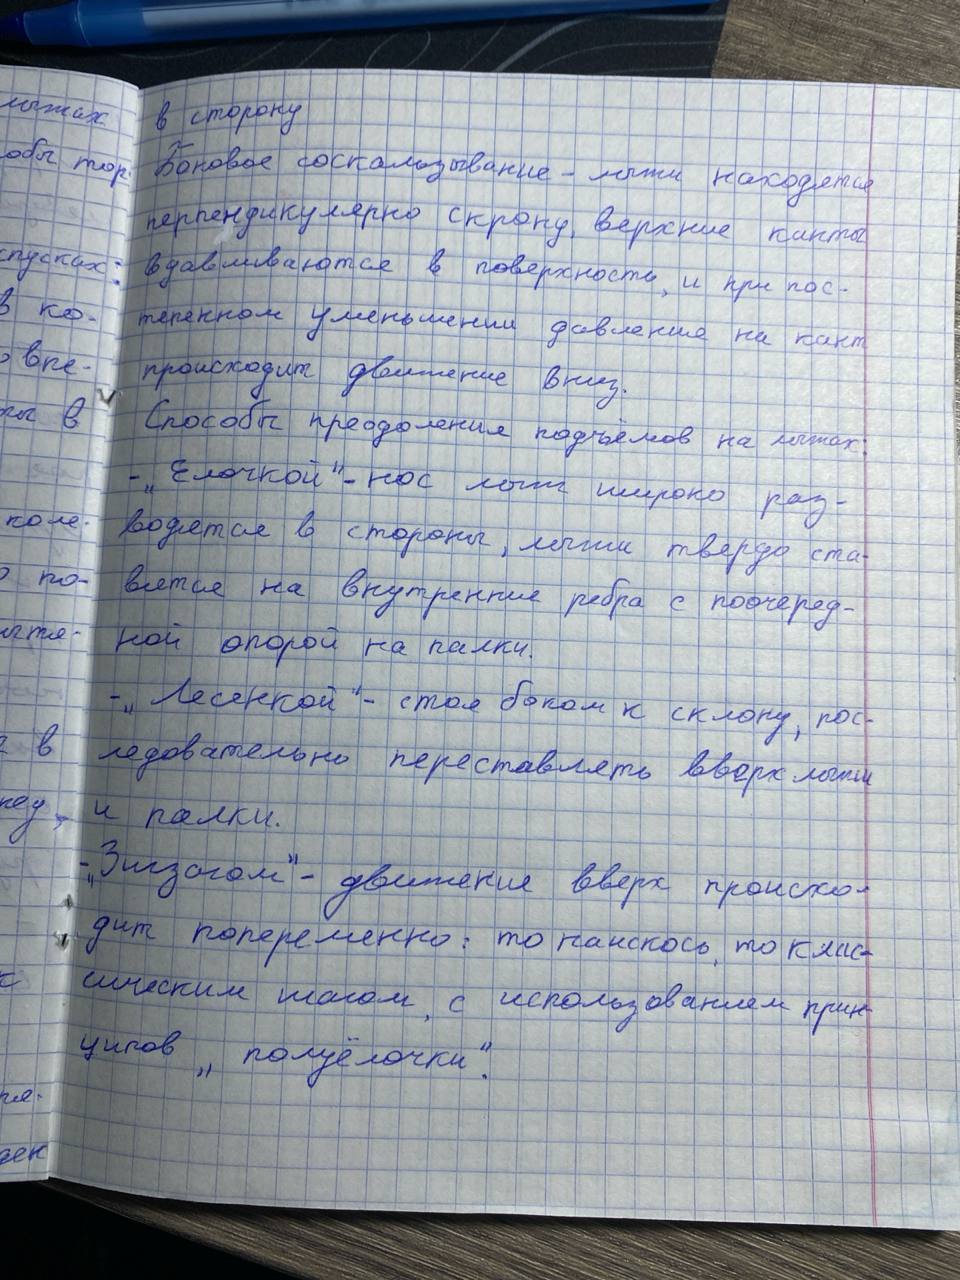 лыжах
обы тор.
спусках:
в ко-
о впе-
ты в
коле-
о по-
в
пед,
к
в сторону
Боковое соскальзывание - лыжи находятся
перпендикулярно скрону, верхние канты
вдавливаются в поверхность, и при пос-
тепенном уменьшении давление на кант
происходит движение вниз.
Способы преодоления подъёмов на лыжах:
- „Елочкой" - нос лыж широко раз-
водятся в стороны, лыжи твердо ста-
вятся на внутренние ребра с поочеред-
ной опорой на палки.
- „Лесенкой" - стоя боком к склону, пос-
ледовательно переставлять вверх лыжи
и палки.
- „Зигзагом" - движение вверх происхо-
дит попеременно: то наискось, то клас-
сическим шагом, с использованием прин-
ципов „полуёлочки".